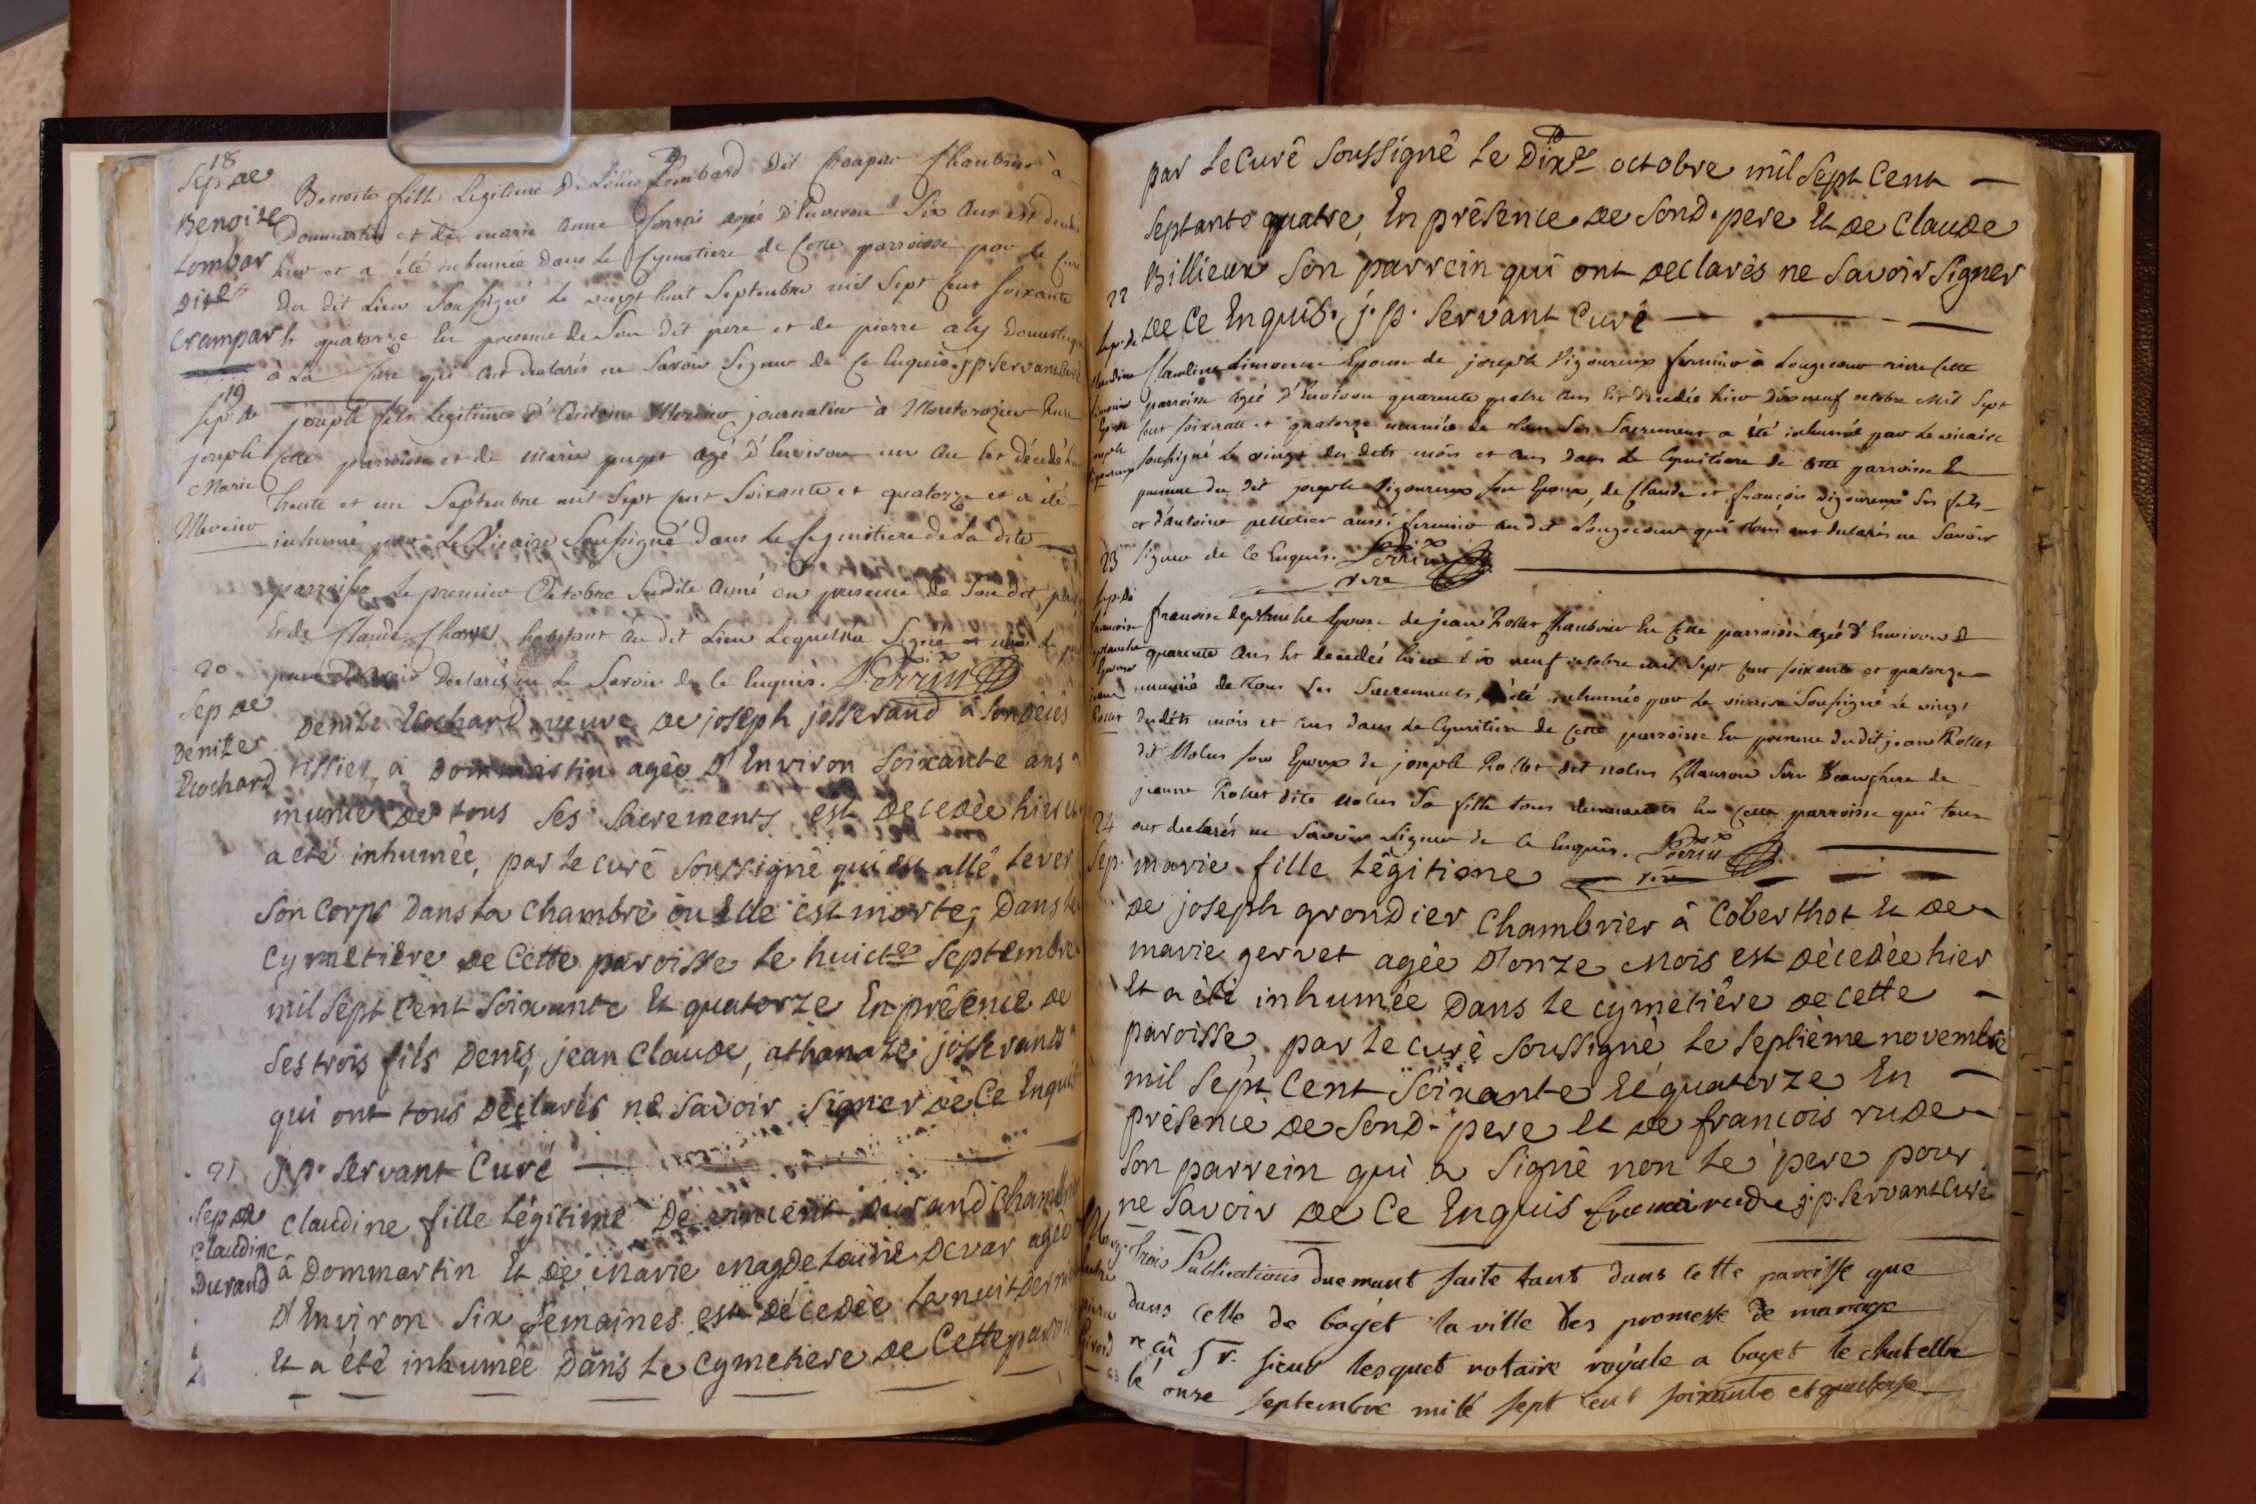 18
Sep de
Benoite
Lombar
Dite
Crampar
Benoite fille Legitime De Louis Lombard Dit Crampar Chambrier à
Dommartin et de marie anne agée d'Environ Six ans est decedée
hier et a été inhumée dans le Cymetiere de Cette parroisse par le Curé
Du dit Lieu Soussigné le vingt huit Septembre mil Sept Cent soixante
et quatorze En presence de Son Dit pere et de pierre aly Domestique
à La Cure qui ont declarés ne Savoir Signer de Ce Enquis. j p. Servant Curé
19
Sep. de
joseph
Marie
joseph fils Legitime d'Antoine journalier à Montrozier Sur
Cette parroisse et de Marie puget agé d'Environ un an Est décédé le
trente et un Septembre mil Sept Cent Soixante et quatorze et a été
inhumé par Le Vicaire Soussigné dans le Cymetiere de La dite
parroisse Le premier Octobre Susdite année en presence de Son dit père
Et de Claude habitant au dit Lieu Lequel n'a Signé
pour declarés ne Le Savoir de Ce Enquis. Perrin
20
Sep de
Denize
Rochard
Denize Rochard veuve de joseph josserand à Son décès
tissier, a Dommartin agée d'Environ soixante ans
munie de tous ses sacrements est décedée hier et
a eté inhumée, par le curé soussigné qui est allé lever
Son corps Dans la chambre ou Elle est morte, Dans le
Cymetière de Cette paroisse le huict septembre
mil sept cent soixante Et quatorze En présence de
Ses trois fils Denis, jean claude, athanaze josserands
qui ont tous déclarés ne savoir signer de Ce Enquis
j p. Servant Curé
21
Sep de
Claudine
Durand
Claudine fille légitime De vincent Durand Chambrier
â Dommartin Et de Marie Magdelaine Devar agée
D'Environ Six Semaines est décedée la nuit derniere
Et a été inhumée Dans le Cymetiere de Cette paroisse
par Le Curé Soussigné Le Dix octobre mil Sept Cent
Septante quatre, En présence de Sond. pere Et de Claude
Billieux Son parrein qui ont declarés ne Savoir Signer
de Ce Enquis. j. p. Servant Curé
22
Sep. de
Claudine
Epouse
joseph
Vigoureux
Claudine Limonin Epouse de joseph Vigoureux fermier à Longecour rière Cette
parroisse agée d'Environ quarente quatre ans Est decedée hier dix neuf octobre Mil Sept
Cent soixante et quatorze munie de tous Ses Sacremens a été inhumée par Le vicaire
soussigné Le vingt des dits mois et ans dans Le Cymitiere de Cette parroisse En
presence du dit joseph Vigoureux Son Epoux, de Claude et françois vigoureux Ses fils
et d'antoine pelletier aussi fermier au dit Longecour qui tous ont declarés ne Savoir
Signer de Ce Enquis. Perrin
vire
23
Sep. de
francoise
Deplanche
Epouse
jean
Rollet
francoise deplanche Epouse de jean Rollet Chambrier En Cette parroisse agée d'Environ
quarente ans Est decedée hier dix neuf octobre mil Sept Cent soixante et quatorze
munie de tous Ses Sacrements, a été inhumée par Le vicaire Soussigné Le vingt
desdits mois et ans dans Le Cymitiere de Cette parroisse En presence dudit jean Rollet
dit Molus Son Epoux de joseph Rollet dit Molus Son Beaufrere de
jeanne Rollet dite Molus Sa fille tous demeurants En Cette parroisse qui tous
ont declarés ne Savoir Signer de Ce Enquis. Perrin
vire
24
Sep.
marie fille légitime
de joseph grondier Chambrier â Coberthot Et de
marie gervet agée d'onze Mois est décedée hier
Et a été inhumée Dans le cymetiére de cette
paroisse, par le curé soussigné le septième novembre
mil sept cent soixante Et quatorze En
présence de Sond. pere Et de francois rude
Son parrein qui a signé non le pere pour
ne savoir de Ce Enquis francois rude j. p. Servant Curé
Marg.
Entre
pierre
Trois Publications duement faite tant dans cette paroisse que
dans celle de bagét la ville des promesse de mariage
reçû Sr. sieur lesquet notaire royale a baget le chatelle
le onze septembre mile sept cent soixante et quatorse